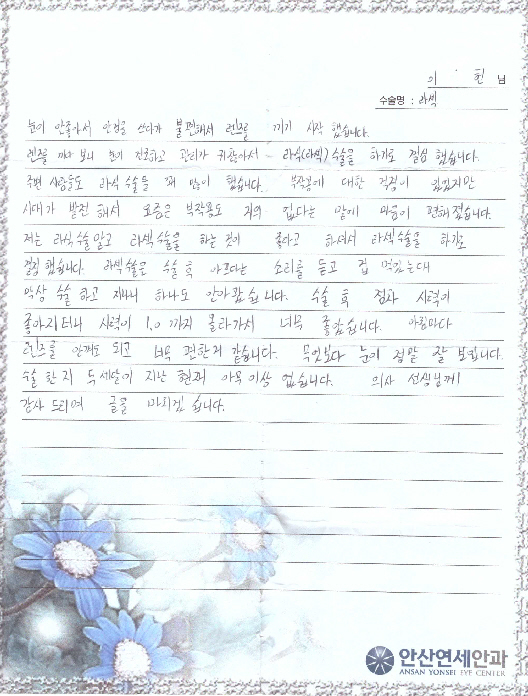 이 헌 님
수술명 : 라섹
눈이 안좋아서 안경을 쓰다가 불편해서 렌즈를 끼기 시작 했습니다.
렌즈를 끼다 보니 눈이 건조하고 관리가 귀찮아서 라식(라섹) 수술을 하기로 결심 했습니다.
주변 사람들도 라식 수술을 꽤 많이 했습니다. 부작용에 대한 걱정이 있었지만
시대가 발전 해서 요즘은 부작용도 거의 없다는 말에 마음이 편해졌습니다.
저는 라식수술말고 라섹수술을 하는 것이 좋다고 하셔서 라섹수술을 하기로
결심 했습니다. 라섹수술은 수술 후 아프다는 소리를 듣고 겁 먹었는데
막상 수술 하고 지나니 하나도 안아팠습니다. 수술 후 점차 시력이
좋아지더니 시력이 1.0 까지 올라가서 너무 좋았습니다. 아침마다
렌즈를 안껴도 되고 너무 편한거 같습니다. 무엇보다 눈이 정말 잘 보입니다.
수술 한지 두세달이 지난 현재 아무이상 없습니다. 의사 선생님께
감사 드리며 글을 마치겠습니다.
안산연세안과
ANSAN YONSEI EYE CENTER